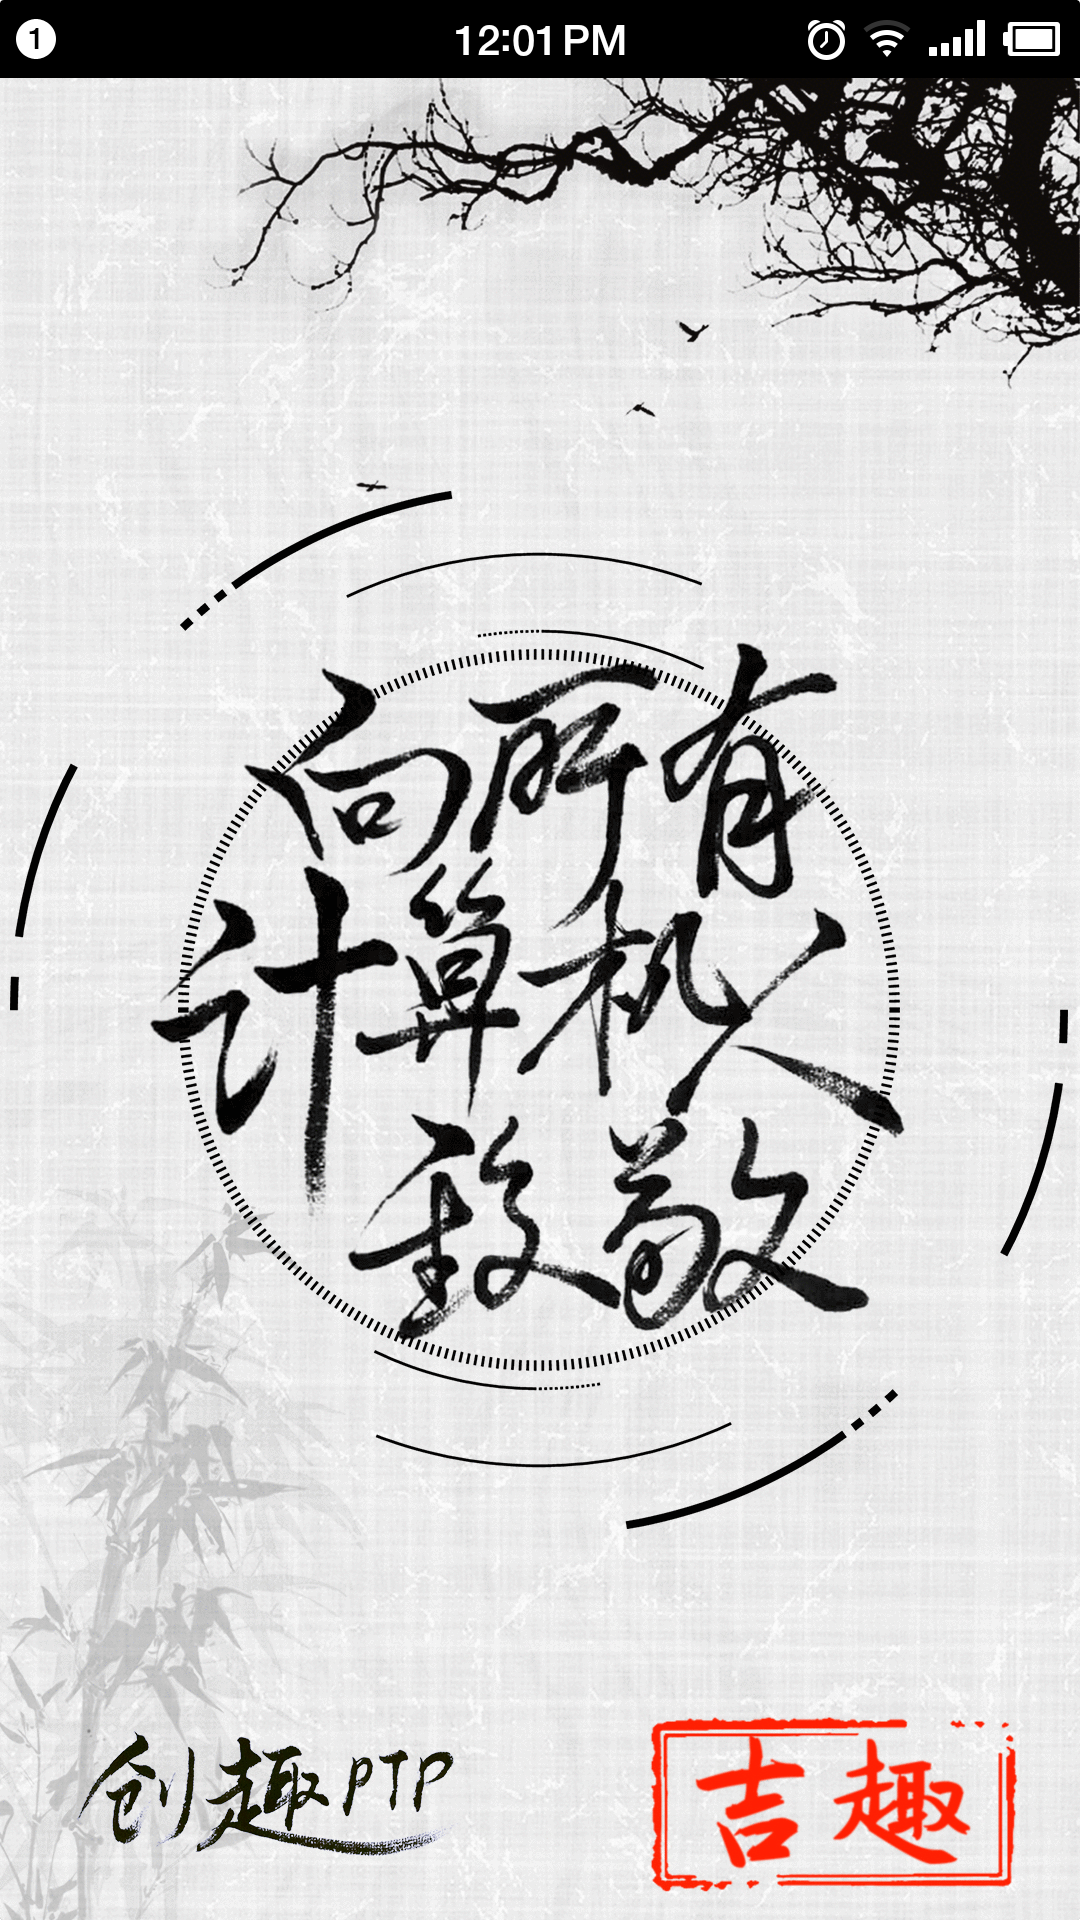 1
12:01 PM
向所有
计算机人
致敬
创趣PTP
吉趣